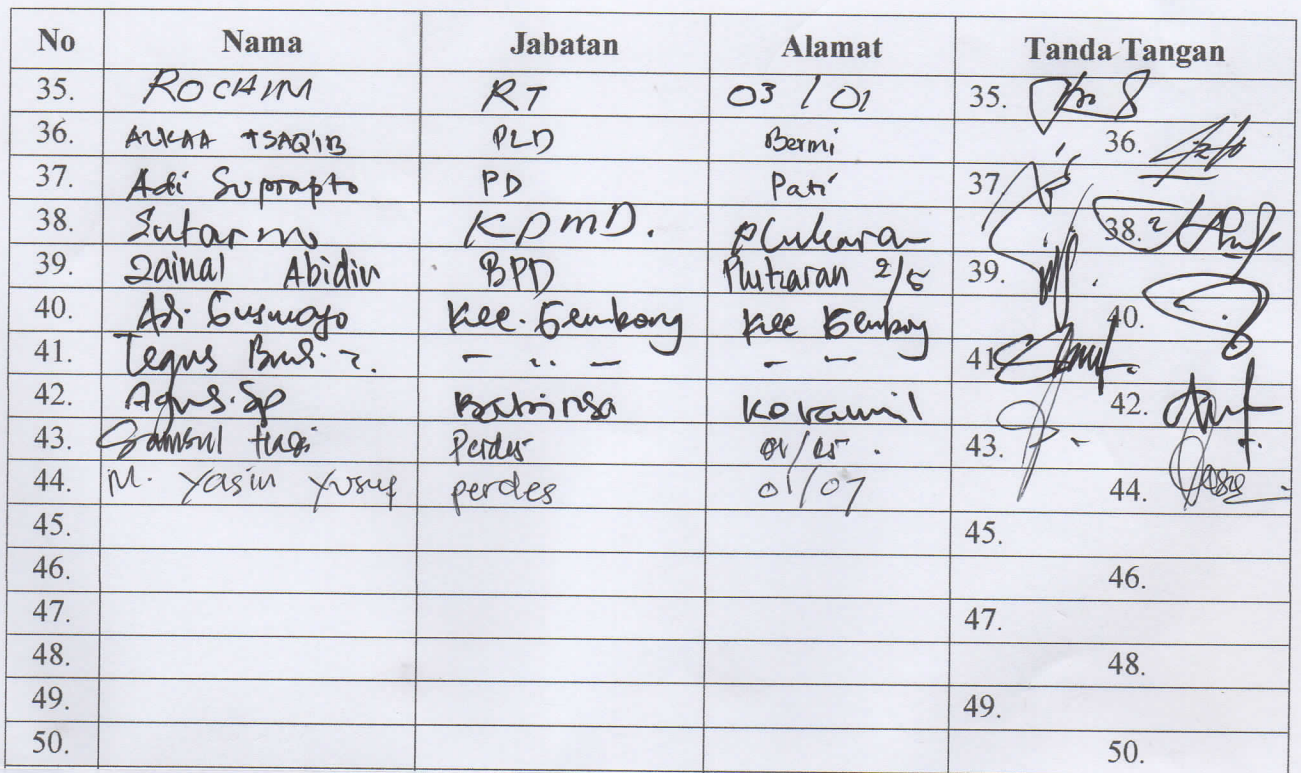 No Nama Jabatan Alamat Tanda Tangan
35. ROCHIM RT 03 / 01 35.
36. ALKAA TSAQIB PLD Bermi 36.
37. Adi Suprapto PD Pati 37.
38. Sutarmo KPMD. Plukaran 38.
39. Zainal Abidin BPD Plukaran 2/5 39.
40. Adi Kec. Gembong Kec Gembong 40.
41. Teguh - " - - - 41.
42. Agus. Sp Babinsa Koramil 42.
43. Samsul Hadi Perdes 43.
44. M. Yasin Yusuf perdes 01/01 44.
45. 45.
46. 46.
47. 47.
48. 48.
49. 49.
50. 50.